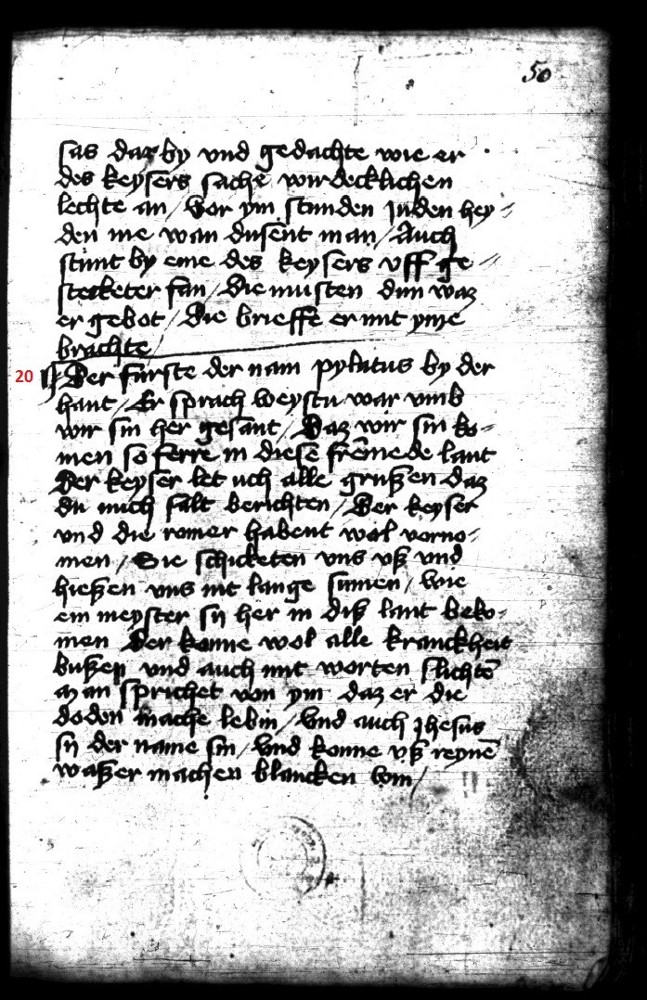 50
sas dar by vnd gedachte wie er
des keysers sache wirdecklichen
lechte an / Vor ym stunden Juden hey-
den me wan dusent man / Auch
stunt by eme des keysers vff ge-
stecketer fan / Die musten dun waz
er gebot / Die brieffe er mit yme
brachte /
20 Der furste der nam pylatus by der
hant / Er sprach weystu war vmb
wir sin her gesant / Daz wir sin ko-
men so ferre in diese fremede lant
Der keyser let uch alle grußen daz
du mich salt berichten / Der keyser
vnd die romer habent wol verno-
men / Sie schicketen vns vß vnd
hießen vns nit lange sumen / wie
ein meyster sij her in diß lant beko-
men Der konne wol alle kranckheit
bußen vnd auch mit worten slichtē
Man sprichet von ym daz er die
dodon mache lebin / Vnd auch Jhesus
sij der name sin / Vnd konne vß reynē
waßer machen blancken win /